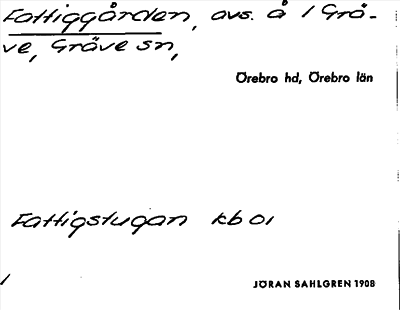 Fattiggården, avs. å 1 Grä-
ve, Gräve sn,
Örebro hd, Örebro län
Fattigstugan kb 01
/
JÖRAN SAHLGREN 1908